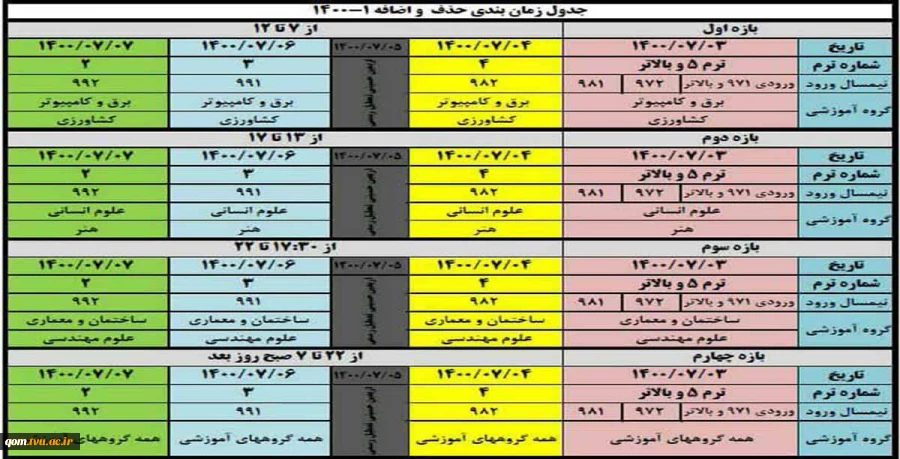 جدول زمان بندی حذف و اضافه ۱-۱۴۰۰
بازه اول از ۷ تا ۱۲
تاریخ ۱۴۰۰/۰۷/۰۳ ۱۴۰۰/۰۷/۰۴ ۱۴۰۰/۰۷/۰۵ ۱۴۰۰/۰۷/۰۶ ۱۴۰۰/۰۷/۰۷
شماره ترم ترم ۵ و بالاتر ۴ ۳ ۲
نیمسال ورود ورودی ۹۷۱ و بالاتر ۹۷۲ ۹۸۱ ۹۸۲ ۹۹۱ ۹۹۲
گروه آموزشی برق و کامپیوتر برق و کامپیوتر برق و کامپیوتر برق و کامپیوتر
کشاورزی کشاورزی کشاورزی کشاورزی
اربعین حسینی تعطیل رسمی
بازه دوم از ۱۳ تا ۱۷
تاریخ ۱۴۰۰/۰۷/۰۳ ۱۴۰۰/۰۷/۰۴ ۱۴۰۰/۰۷/۰۵ ۱۴۰۰/۰۷/۰۶ ۱۴۰۰/۰۷/۰۷
شماره ترم ترم ۵ و بالاتر ۴ ۳ ۲
نیمسال ورود ورودی ۹۷۱ و بالاتر ۹۷۲ ۹۸۱ ۹۸۲ ۹۹۱ ۹۹۲
گروه آموزشی علوم انسانی علوم انسانی علوم انسانی علوم انسانی
هنر هنر هنر هنر
اربعین حسینی تعطیل رسمی
بازه سوم از ۱۷:۳۰ تا ۲۲
تاریخ ۱۴۰۰/۰۷/۰۳ ۱۴۰۰/۰۷/۰۴ ۱۴۰۰/۰۷/۰۵ ۱۴۰۰/۰۷/۰۶ ۱۴۰۰/۰۷/۰۷
شماره ترم ترم ۵ و بالاتر ۴ ۳ ۲
نیمسال ورود ورودی ۹۷۱ و بالاتر ۹۷۲ ۹۸۱ ۹۸۲ ۹۹۱ ۹۹۲
گروه آموزشی ساختمان و معماری ساختمان و معماری ساختمان و معماری ساختمان و معماری
علوم مهندسی علوم مهندسی علوم مهندسی علوم مهندسی
اربعین حسینی تعطیل رسمی
بازه چهارم از ۲۲ تا ۷ صبح روز بعد
تاریخ ۱۴۰۰/۰۷/۰۳ ۱۴۰۰/۰۷/۰۴ ۱۴۰۰/۰۷/۰۵ ۱۴۰۰/۰۷/۰۶ ۱۴۰۰/۰۷/۰۷
شماره ترم ترم ۵ و بالاتر ۴ ۳ ۲
نیمسال ورود ورودی ۹۷۱ و بالاتر ۹۷۲ ۹۸۱ ۹۸۲ ۹۹۱ ۹۹۲
گروه آموزشی همه گروههای آموزشی همه گروههای آموزشی همه گروههای آموزشی همه گروههای
اربعین حسینی تعطیل رسمی
qom.tvu.ac.ir